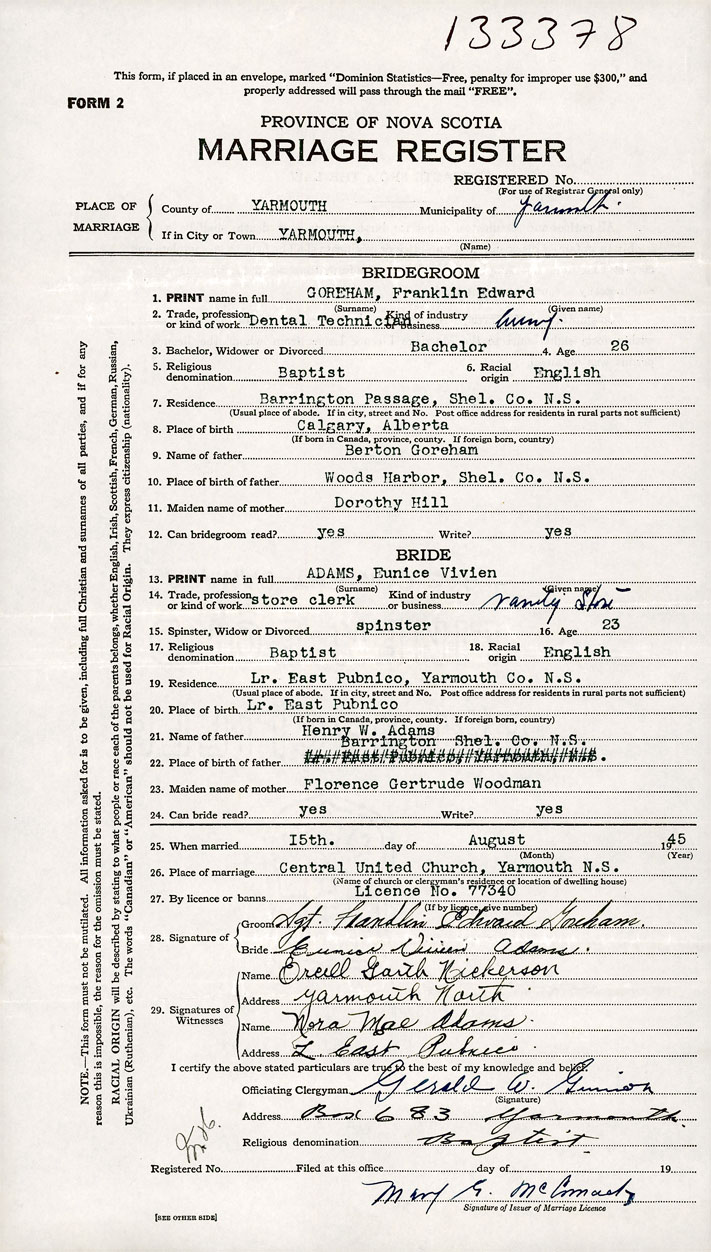 133378
This form, if placed in an envelope, marked "Dominion Statistics—Free, penalty for improper use $300," and
properly addressed will pass through the mail "FREE".
FORM 2
PROVINCE OF NOVA SCOTIA
MARRIAGE REGISTER
REGISTERED No.
(For use of Registrar General only)
PLACE OF MARRIAGE
County of YARMOUTH Municipality of Yarmouth
If in City or Town YARMOUTH,
(Name)
BRIDEGROOM
1. PRINT name in full GOREHAM, Franklin Edward
(Surname) (Given name)
2. Trade, profession or kind of work Dental Technician Kind of industry or business Army.
3. Bachelor, Widower or Divorced Bachelor 4. Age 26
5. Religious denomination Baptist 6. Racial origin English
7. Residence Barrington Passage, Shel. Co. N.S.
(Usual place of abode. If in city, street and No. Post office address for residents in rural parts not sufficient)
8. Place of birth Calgary, Alberta
(If born in Canada, province, county. If foreign born, country)
9. Name of father Berton Goreham
10. Place of birth of father Woods Harbor, Shel. Co. N.S.
11. Maiden name of mother Dorothy Hill
12. Can bridegroom read? yes Write? yes
BRIDE
13. PRINT name in full ADAMS, Eunice Vivien
(Surname) (Given name)
14. Trade, profession or kind of work store clerk Kind of industry or business Store
15. Spinster, Widow or Divorced spinster 16. Age 23
17. Religious denomination Baptist 18. Racial origin English
19. Residence Lr. East Pubnico, Yarmouth Co. N.S.
(Usual place of abode. If in city, street and No. Post office address for residents in rural parts not sufficient)
20. Place of birth Lr. East Pubnico
(If born in Canada, province, county. If foreign born, country)
21. Name of father Henry W. Adams
Barrington Shel. Co. N.S.
22. Place of birth of father Lr. East Pubnico, Yarmouth, N.S.
23. Maiden name of mother Florence Gertrude Woodman
24. Can bride read? yes Write? yes
25. When married I5th. day of August 1945
(Month) (Year)
26. Place of marriage Central United Church, Yarmouth N.S.
(Name of church or clergyman's residence or location of dwelling house)
27. By licence or banns Licence No. 77340
(If by licence, give number)
28. Signature of
Groom Sgt. Franklin Edward Goreham.
Bride Eunice Vivien Adams.
29. Signatures of Witnesses
Name Garth Nickerson
Address Yarmouth North
Name Nora Mae Adams.
Address L East Pubnico.
I certify the above stated particulars are true to the best of my knowledge and belief.
Officiating Clergyman Gerald W.
(Signature)
Address Box 683 Yarmouth.
Religious denomination Baptist.
Registered No. Filed at this office day of 19
Mary G. McCormack
Signature of Issuer of Marriage Licence
[SEE OTHER SIDE]
NOTE.—This form must not be mutilated. All information asked for is to be given, including full Christian and surnames of all parties, and if for any
reason this is impossible, the reason for the omission must be stated.
RACIAL ORIGIN will be described by stating to what people or race each of the parents belongs, whether English, Irish, Scottish, French, German, Russian,
Ukrainian (Ruthenian), etc. The words "Canadian" or "American" should not be used for Racial Origin. They express citizenship (nationality).